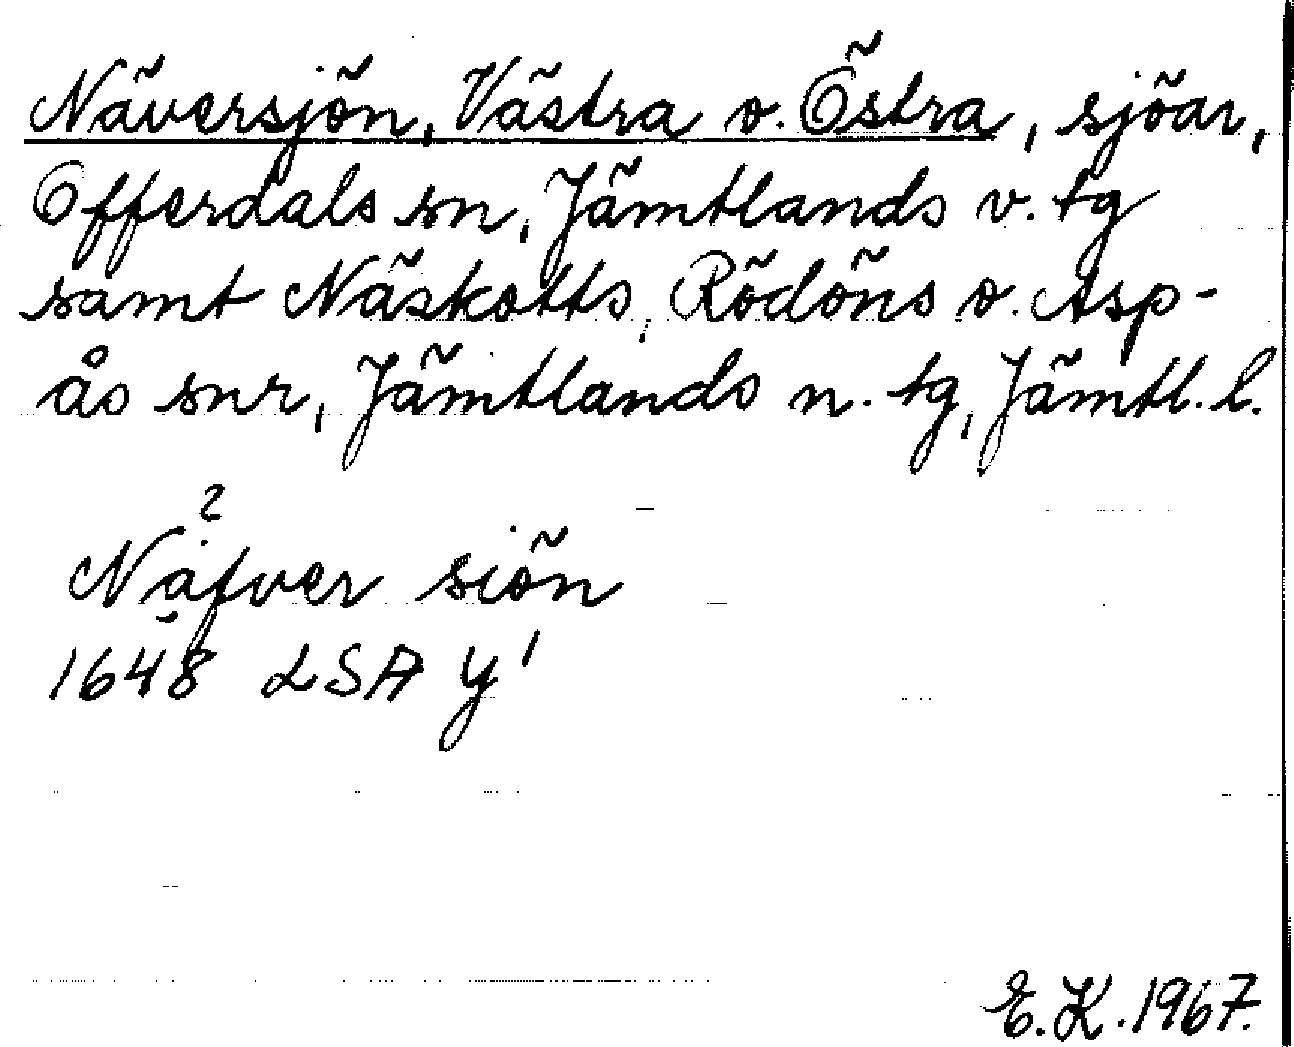 Näversjön, Västra o. Östra, sjöar,
Offerdals sn, Jämtlands v. tg
samt Näskotts, Rödöns o. Asp-
ås snr, Jämtlands n. tg, Jämtl. l.
?
Nȧfver siön
1648 LSA y¹
E.K. 1967.